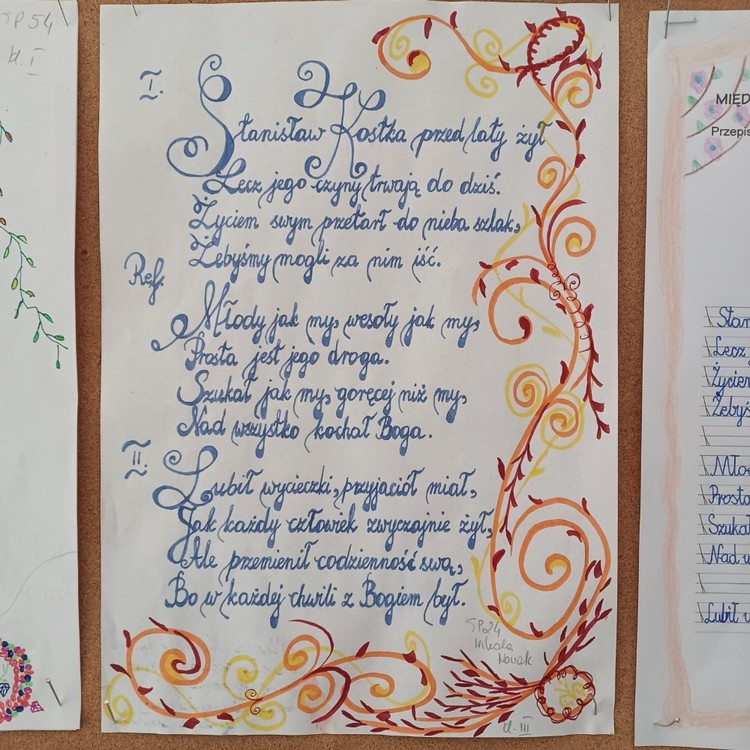 SP54
kl. I
I.
Stanisław Kostka przed laty żył
Lecz jego czyny trwają do dziś.
Życiem swym przetarł do nieba szlak,
Żebyśmy mogli za nim iść.
Ref.
Młody jak my, wesoły jak my,
Prosta jest jego droga.
Szukał jak my, goręcej niż my,
Nad wszystko kochał Boga.
II.
Lubił wycieczki, przyjaciół miał,
Jak każdy człowiek zwyczajnie żył,
Ale przemienił codzienność swą,
Bo w każdej chwili z Bogiem był.
SP24
Nikola
Nowak
kl. III
MIĘD
Przepis
Stan
Lecz j
Życiem
Żebyś
Mło
Prosta
Szukał
Nad w
Lubił w